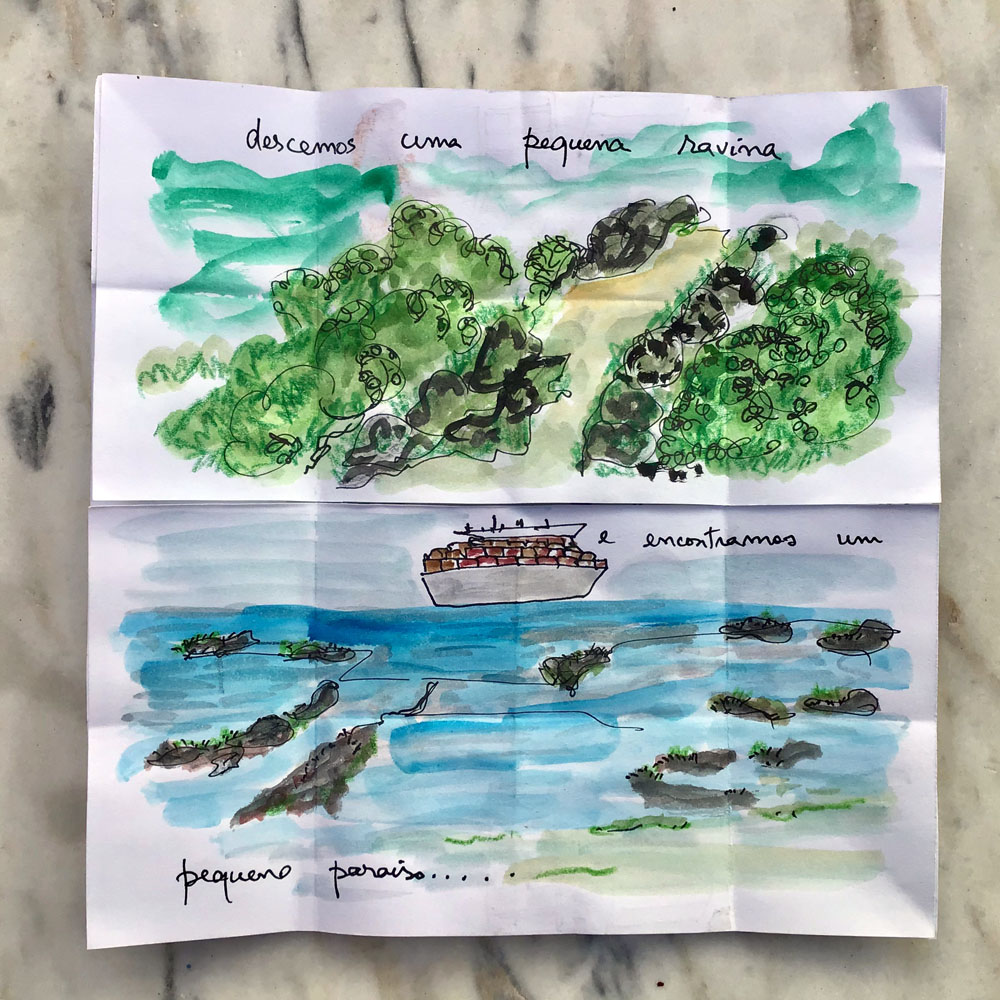 descemos uma pequena ravina
e encontramos um
pequeno paraiso.....